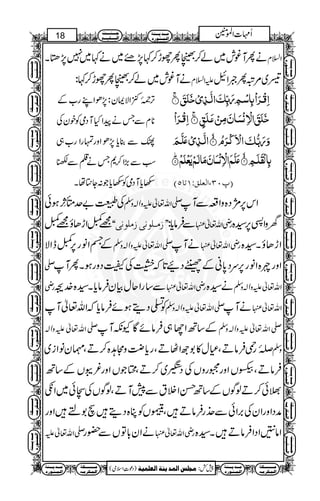 18
اُمہات المؤمنین
السلام نے پھر آغوش میں لے کر بھینچا پھر چھوڑ کر کہا پڑھئے میں نے کہا میں نہیں پڑھتا۔
تیسری مرتبہ پھر جبرائیل علیہ السلام نے آغوش میں لے کر بھینچا پھر چھوڑ کر کہا:
اِقْرَاْ بِاسْمِ رَبِّكَ الَّذِیْ خَلَقَ
ترجمہ کنزالایمان: پڑھو اپنے رب کے
خَلَقَ الْاِنْسَانَ مِنْ عَلَقٍ اِقْرَاْ
نام سے جس نے پیدا کیا آدمی کو خون کی
وَ رَبُّكَ الْاَكْرَمُ الَّذِیْ عَلَّمَ
پھٹک سے بنایا پڑھو اور تمہارا رب ہی
بِالْقَلَمِ عَلَّمَ الْاِنْسَانَ مَا لَمْ یَعْلَمْ
سب سے بڑا کریم جس نے قلم سے لکھنا
(پ۳۰، العلق: ۱ تا ۵)
سکھایا آدمی کو سکھایا جو نہ جانتا تھا۔
اس پر مژدہ واقعہ سے آپ صلی اللہ تعالیٰ علیہ والہ وسلم کی طبیعت بے حد متاثر ہوئی
گھر واپسی پر سیدہ رضی اللہ تعالیٰ عنہا سے فرمایا: "زملونی زملونی" مجھے کمبل اڑھاؤ مجھے کمبل
اڑھاؤ۔ سیدہ رضی اللہ تعالیٰ عنہا نے آپ صلی اللہ تعالیٰ علیہ والہ وسلم کے جسم انور پر کمبل ڈالا
اور چہرہ انور پر سرد پانی کے چھینٹے دیئے تاکہ خشیت کی کیفیت دور ہو۔ پھر آپ صلی
اللہ تعالیٰ علیہ والہ وسلم نے سیدہ رضی اللہ تعالیٰ عنہا سے سارا حال بیان فرمایا۔ سیدہ خدیجہ رضی
اللہ تعالیٰ عنہا نے آپ صلی اللہ تعالیٰ علیہ والہ وسلم کو تسلی دیتے ہوئے فرمایا کہ اللہ تعالیٰ آپ
صلی اللہ تعالیٰ علیہ والہ وسلم کے ساتھ اچھا ہی فرمائے گا کیونکہ آپ صلی اللہ تعالیٰ علیہ والہ
وسلم صلۂ رحمی فرماتے، عیال کا بوجھ اٹھاتے، ریاضت و مجاہدہ کرتے، مہمان نوازی
فرماتے، بیکسوں اور مجبوروں کی دستگیری کرتے، محتاجوں اور غریبوں کے ساتھ
بھلائی کرتے لوگوں کے ساتھ حسن اخلاق سے پیش آتے، لوگوں کی سچائی میں انکی
مدد اور ان کی برائی سے حذر فرماتے ہیں، یتیموں کو پناہ دیتے ہیں سچ بولتے ہیں اور
امانتیں ادا فرماتے ہیں۔ سیدہ رضی اللہ تعالیٰ عنہا نے ان باتوں سے حضور صلی اللہ تعالیٰ علیہ
پیش کش: مجلس المدینۃ العلمیۃ (دعوت اسلامی)